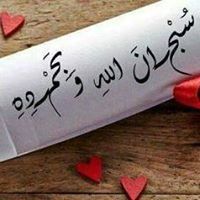 سُبْحَانَ اللهِ وَ بِحَمْدِهِ